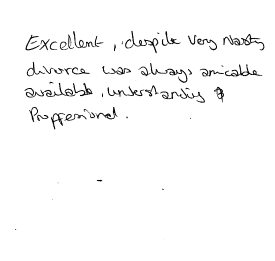 Excellent, despite very nasty
divorce was always amicable
available, understanding &
Proffesional.